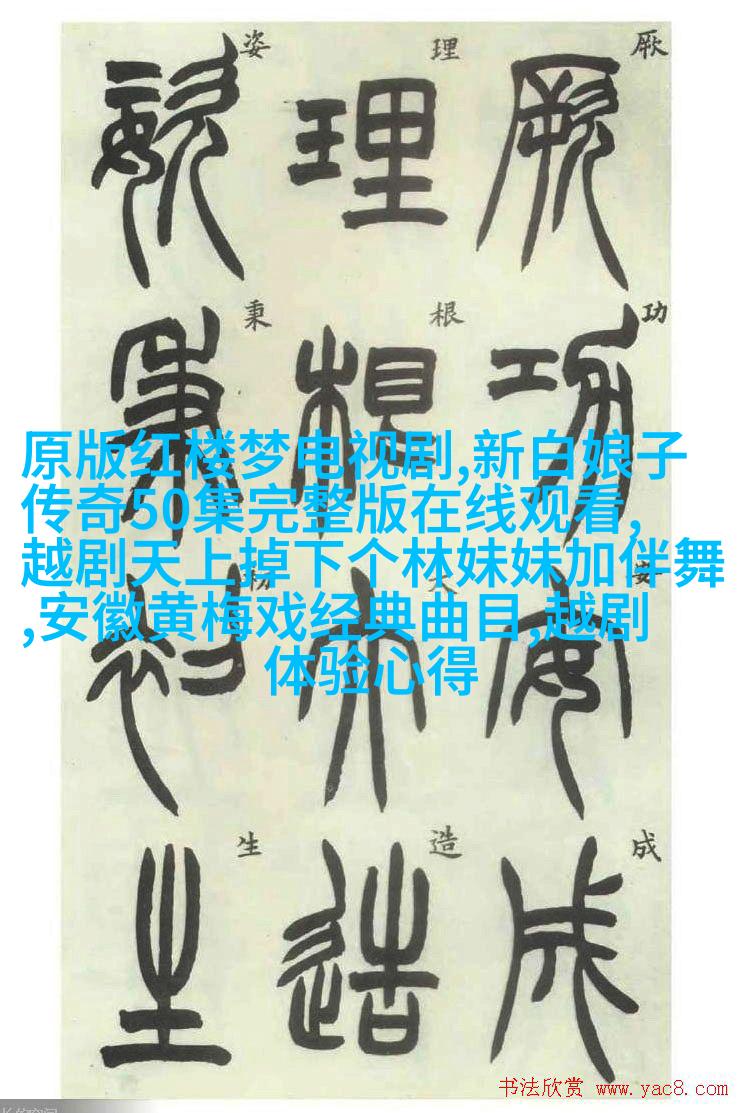 厥功安成
厥功安成
理根大造
理根大造
姿秉初生
姿秉初生
原版红楼梦电视剧,新白娘子
传奇50集完整版在线观看,
越剧天上掉下个林妹妹加伴舞
,安徽黄梅戏经典曲目,越剧
体验心得
书法欣赏 www.yac8.com